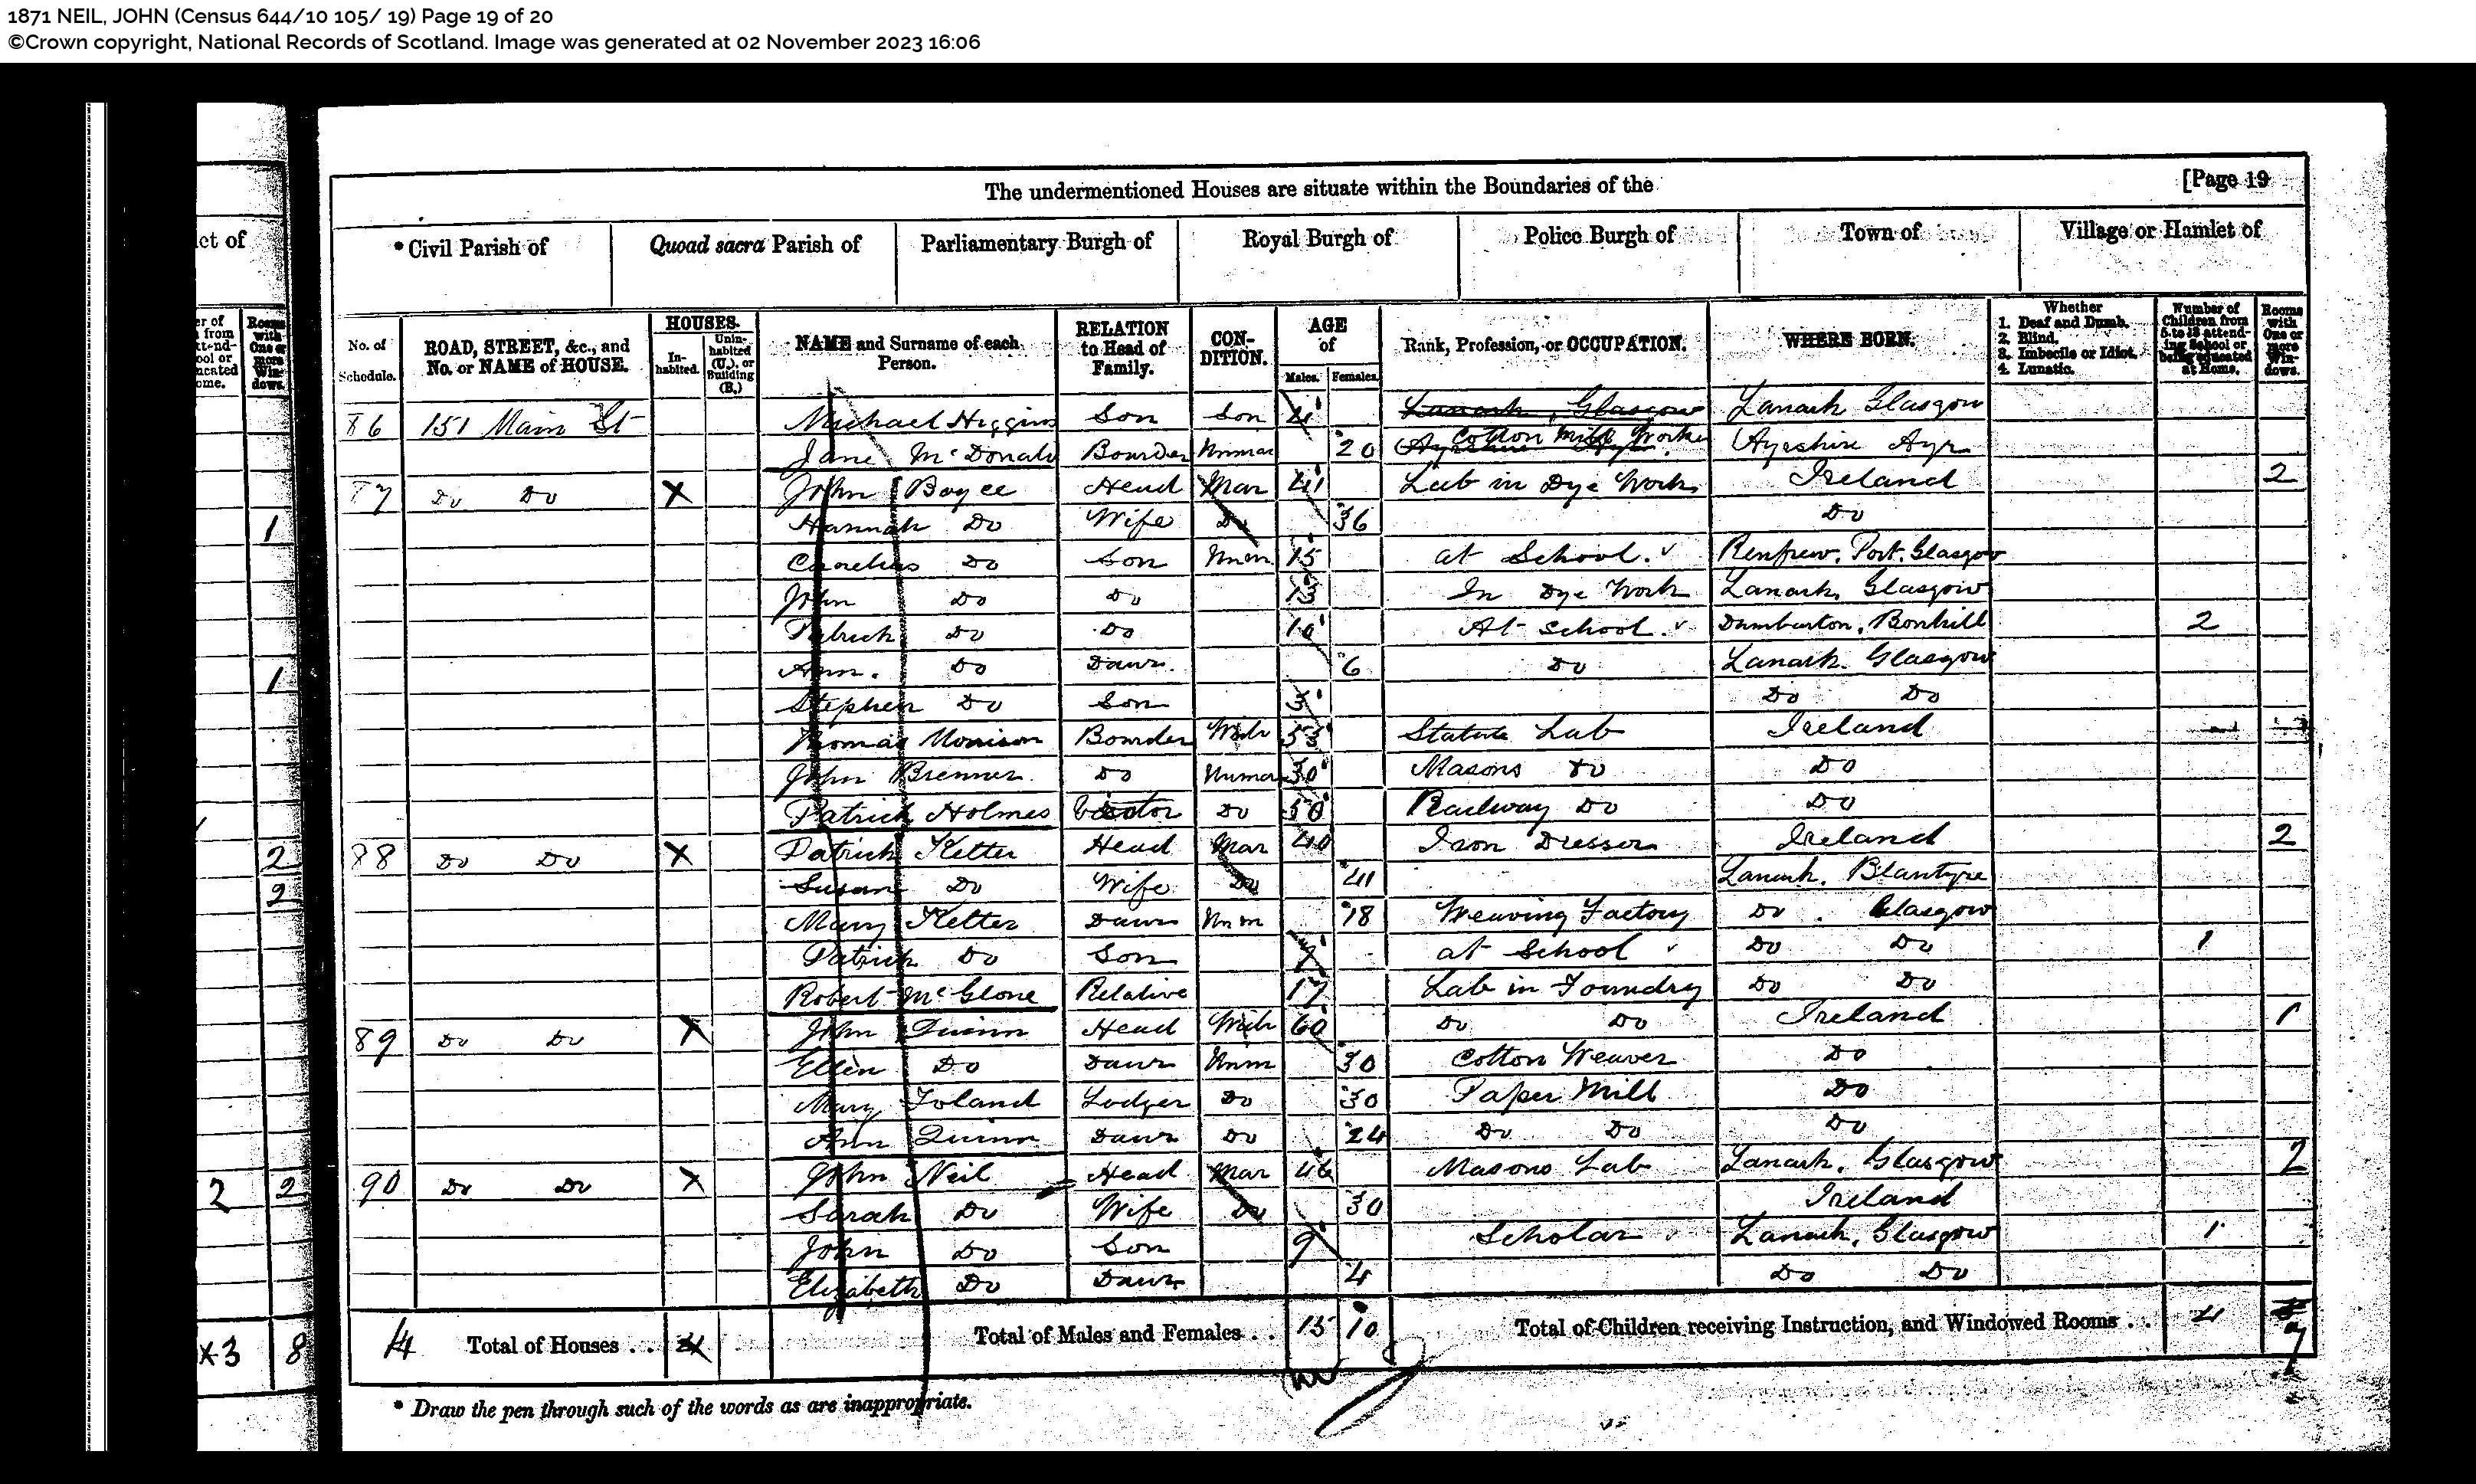 1871 NEIL, JOHN (Census 644/10 105/ 19) Page 19 of 20
©Crown copyright, National Records of Scotland. Image was generated at 02 November 2023 16:06
The undermentioned Houses are situate within the Boundaries of the [Page 19
* Civil Parish of Quoad sacra Parish of Parliamentary Burgh of Royal Burgh of Police Burgh of Town of Village or Hamlet of
No. of Schedule. ROAD, STREET, &c., and No. or NAME of HOUSE. HOUSES. In-habited. Unin-habited (U.), or Building (B.) NAME and Surname of each Person. RELATION to Head of Family. CON-DITION. AGE of Males. Females. Rank, Profession, or OCCUPATION. WHERE BORN. Whether 1. Deaf and Dumb. 2. Blind. 3. Imbecile or Idiot. 4. Lunatic. Number of Children from 5 to 13 attend-ing School or being educated at Home. Rooms with One or more Win-dows.
86 151 Main St Michael Higgins Son Son 4 Lanark, Glasgow Lanark Glasgow
Jane McDonald Boarder Unmar 20 Cotton Mill Worker Ayrshire Ayr
87 Do Do X John Boyce Head Mar 41 Lab in Dye Work Ireland 2
Hannah Do Wife Do 36 Do
Cornelius Do Son Unm 15 at School. Renfrew, Port. Glasgow
John Do Do 13 In Dye Work Lanark, Glasgow
Patrick Do Do 10 At School. Dumbarton, Bonhill 2
Ann. Do Dawr. 6 Do Lanark. Glasgow
Stephen Do Son 3 Do Do
Thomas Morrison Boarder Widr 53 Statute Lab Ireland
John Brenner Do Unmar 30 Masons Do Do
Patrick Holmes Visitor Do 50 Railway Do Do
88 Do Do X Patrick Kelter Head Mar 40 Iron Dresser Ireland 2
Susan Do Wife Do 41 Lanark. Blantyre
Mary Kelter Dawr Unm 18 Weaving Factory Do. Glasgow
Patrick Do Son 7 at School Do Do 1
Robert McGlone Relative 17 Lab in Foundry Do Do
89 Do Do X John Quinn Head Widr 60 Do Do Ireland 1
Ellen Do Dawr Unm 30 Cotton Weaver Do
Mary Toland Lodger Do 30 Paper Mill Do
Ann Quinn Dawr Do 24 Do Do Do
90 Do Do X John Neil Head Mar 46 Masons Lab Lanark. Glasgow 2
Sarah Do Wife Do 30 Ireland
John Do Son 9 Scholar Lanark, Glasgow 1
Elizabeth Do Dawr 4 Do Do
4 Total of Houses . . 4 Total of Males and Females . . 15 10 Total of Children receiving Instruction, and Windowed Rooms . . 4 7
* Draw the pen through such of the words as are inappropriate.